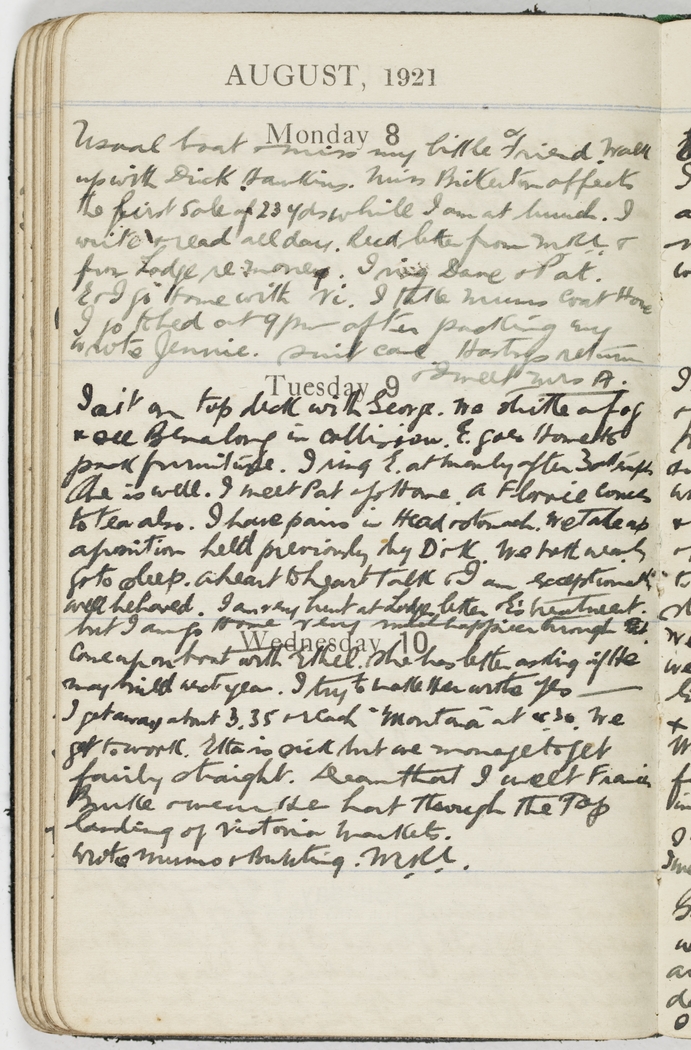 AUGUST, 1921
Monday 8
Usual boat & miss my little Friend. Walk
up with Dick Hawkins. Miss Bickerton affects
the first sale of 23 yds while I am at lunch. I
write & read all day. Recd letter from &
from Lodge re money. I ring Dave & Pat.
E & I go Home with Vi. I take Mums Coat Home
I go to bed at 9 pm after packing my
suit case. return
wrote Jennie.
& I meet Mrs A.
Tuesday 9
I sit on top deck with George. We strike a fog
& see in collision. E. goes Home to
pack furniture. I ring E. at Manly after
She is well. I meet Pat & go Home. A Florrie comes
to tea also. I have pains in Head & stomach. We take up
a position held previously by Dick. We both nearly
go to sleep. a heart to heart Talk & I am exceptionally
well behaved. I am very hurt at Lodge letter & E's treatment.
but I go Home very much happier through
Wednesday 10
Come up on boat with Ethel. She has letter asking if He
may build next year. I try to make Her write yes —
I get away about 3.35 & reach "Montana" at We
get to work. Etta is sick but we manage to get
fairly straight. Dream that I meet Francis
Burke & the host through the Top
landing of Victoria Markets.
Wrote Mums &